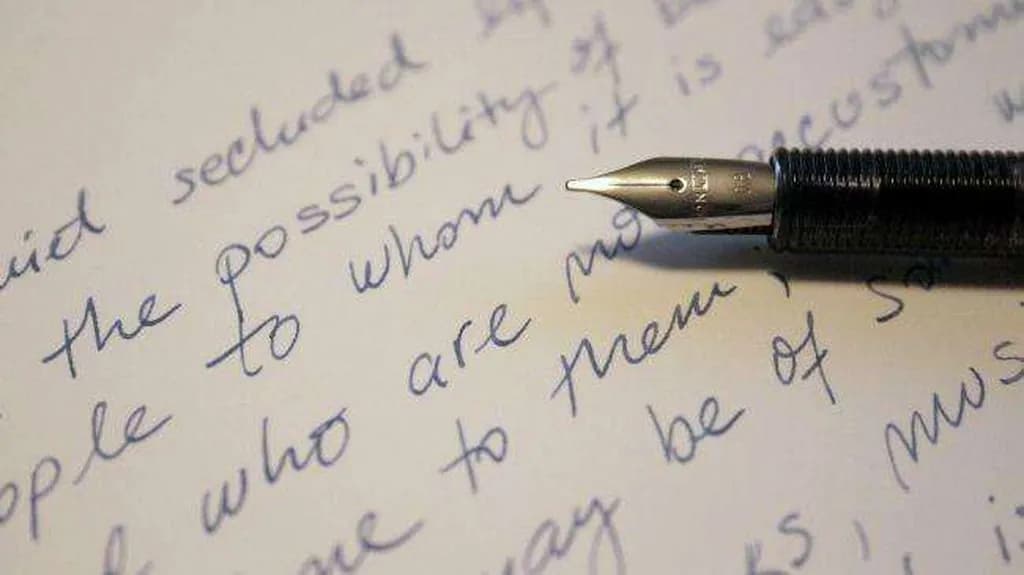 secluded
the possibility of
ople to whom it is easy
who are no accustome
one to them;
may be of so
ks, mus